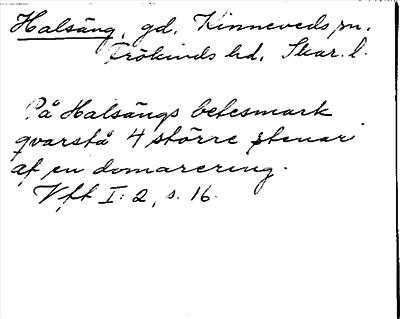 Halsäng, gd, Kinneveds sn.
Frökinds hd, Skar. l.
På Halsängs betesmark
qvarstå 4 större stenar
af en domarering.
Vft I: 2, s. 16.